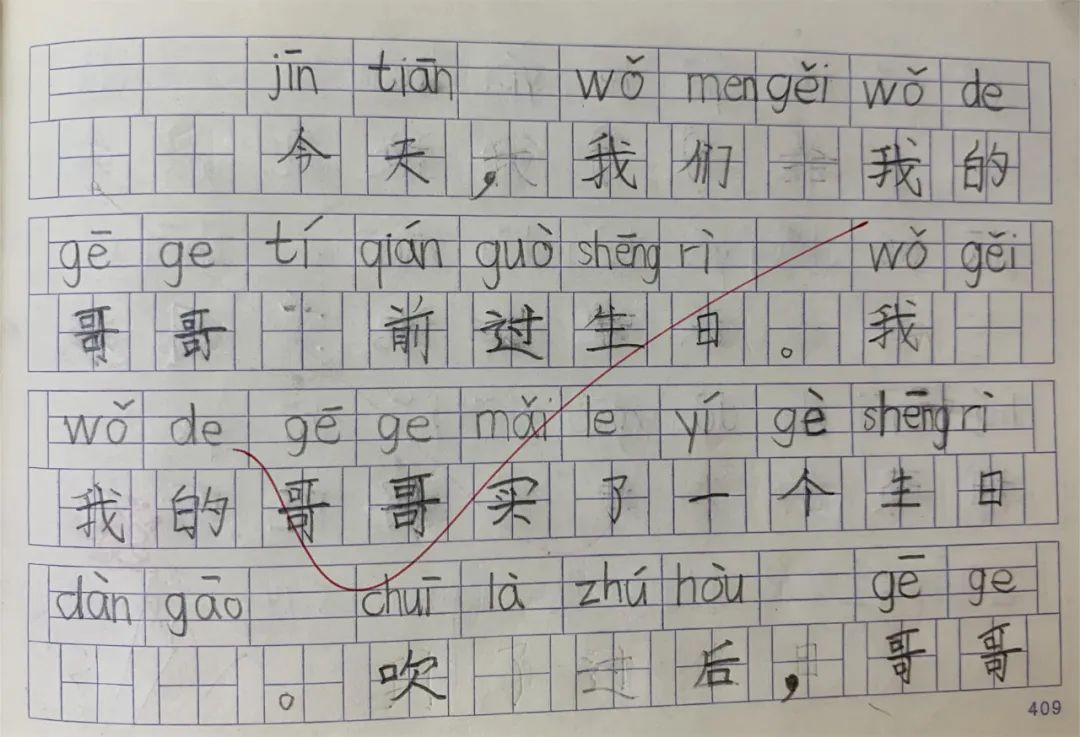 jīn tiān wǒ men gěi wǒ de
今天，我们 我的
gē ge tí qián guò shēng rì wǒ gěi
哥哥 前过生日。我
wǒ de gē ge mǎi le yí gè shēng rì
我的哥哥买了一个生日
dàn gāo chuī là zhú hòu gē ge
。吹 后，哥哥
409